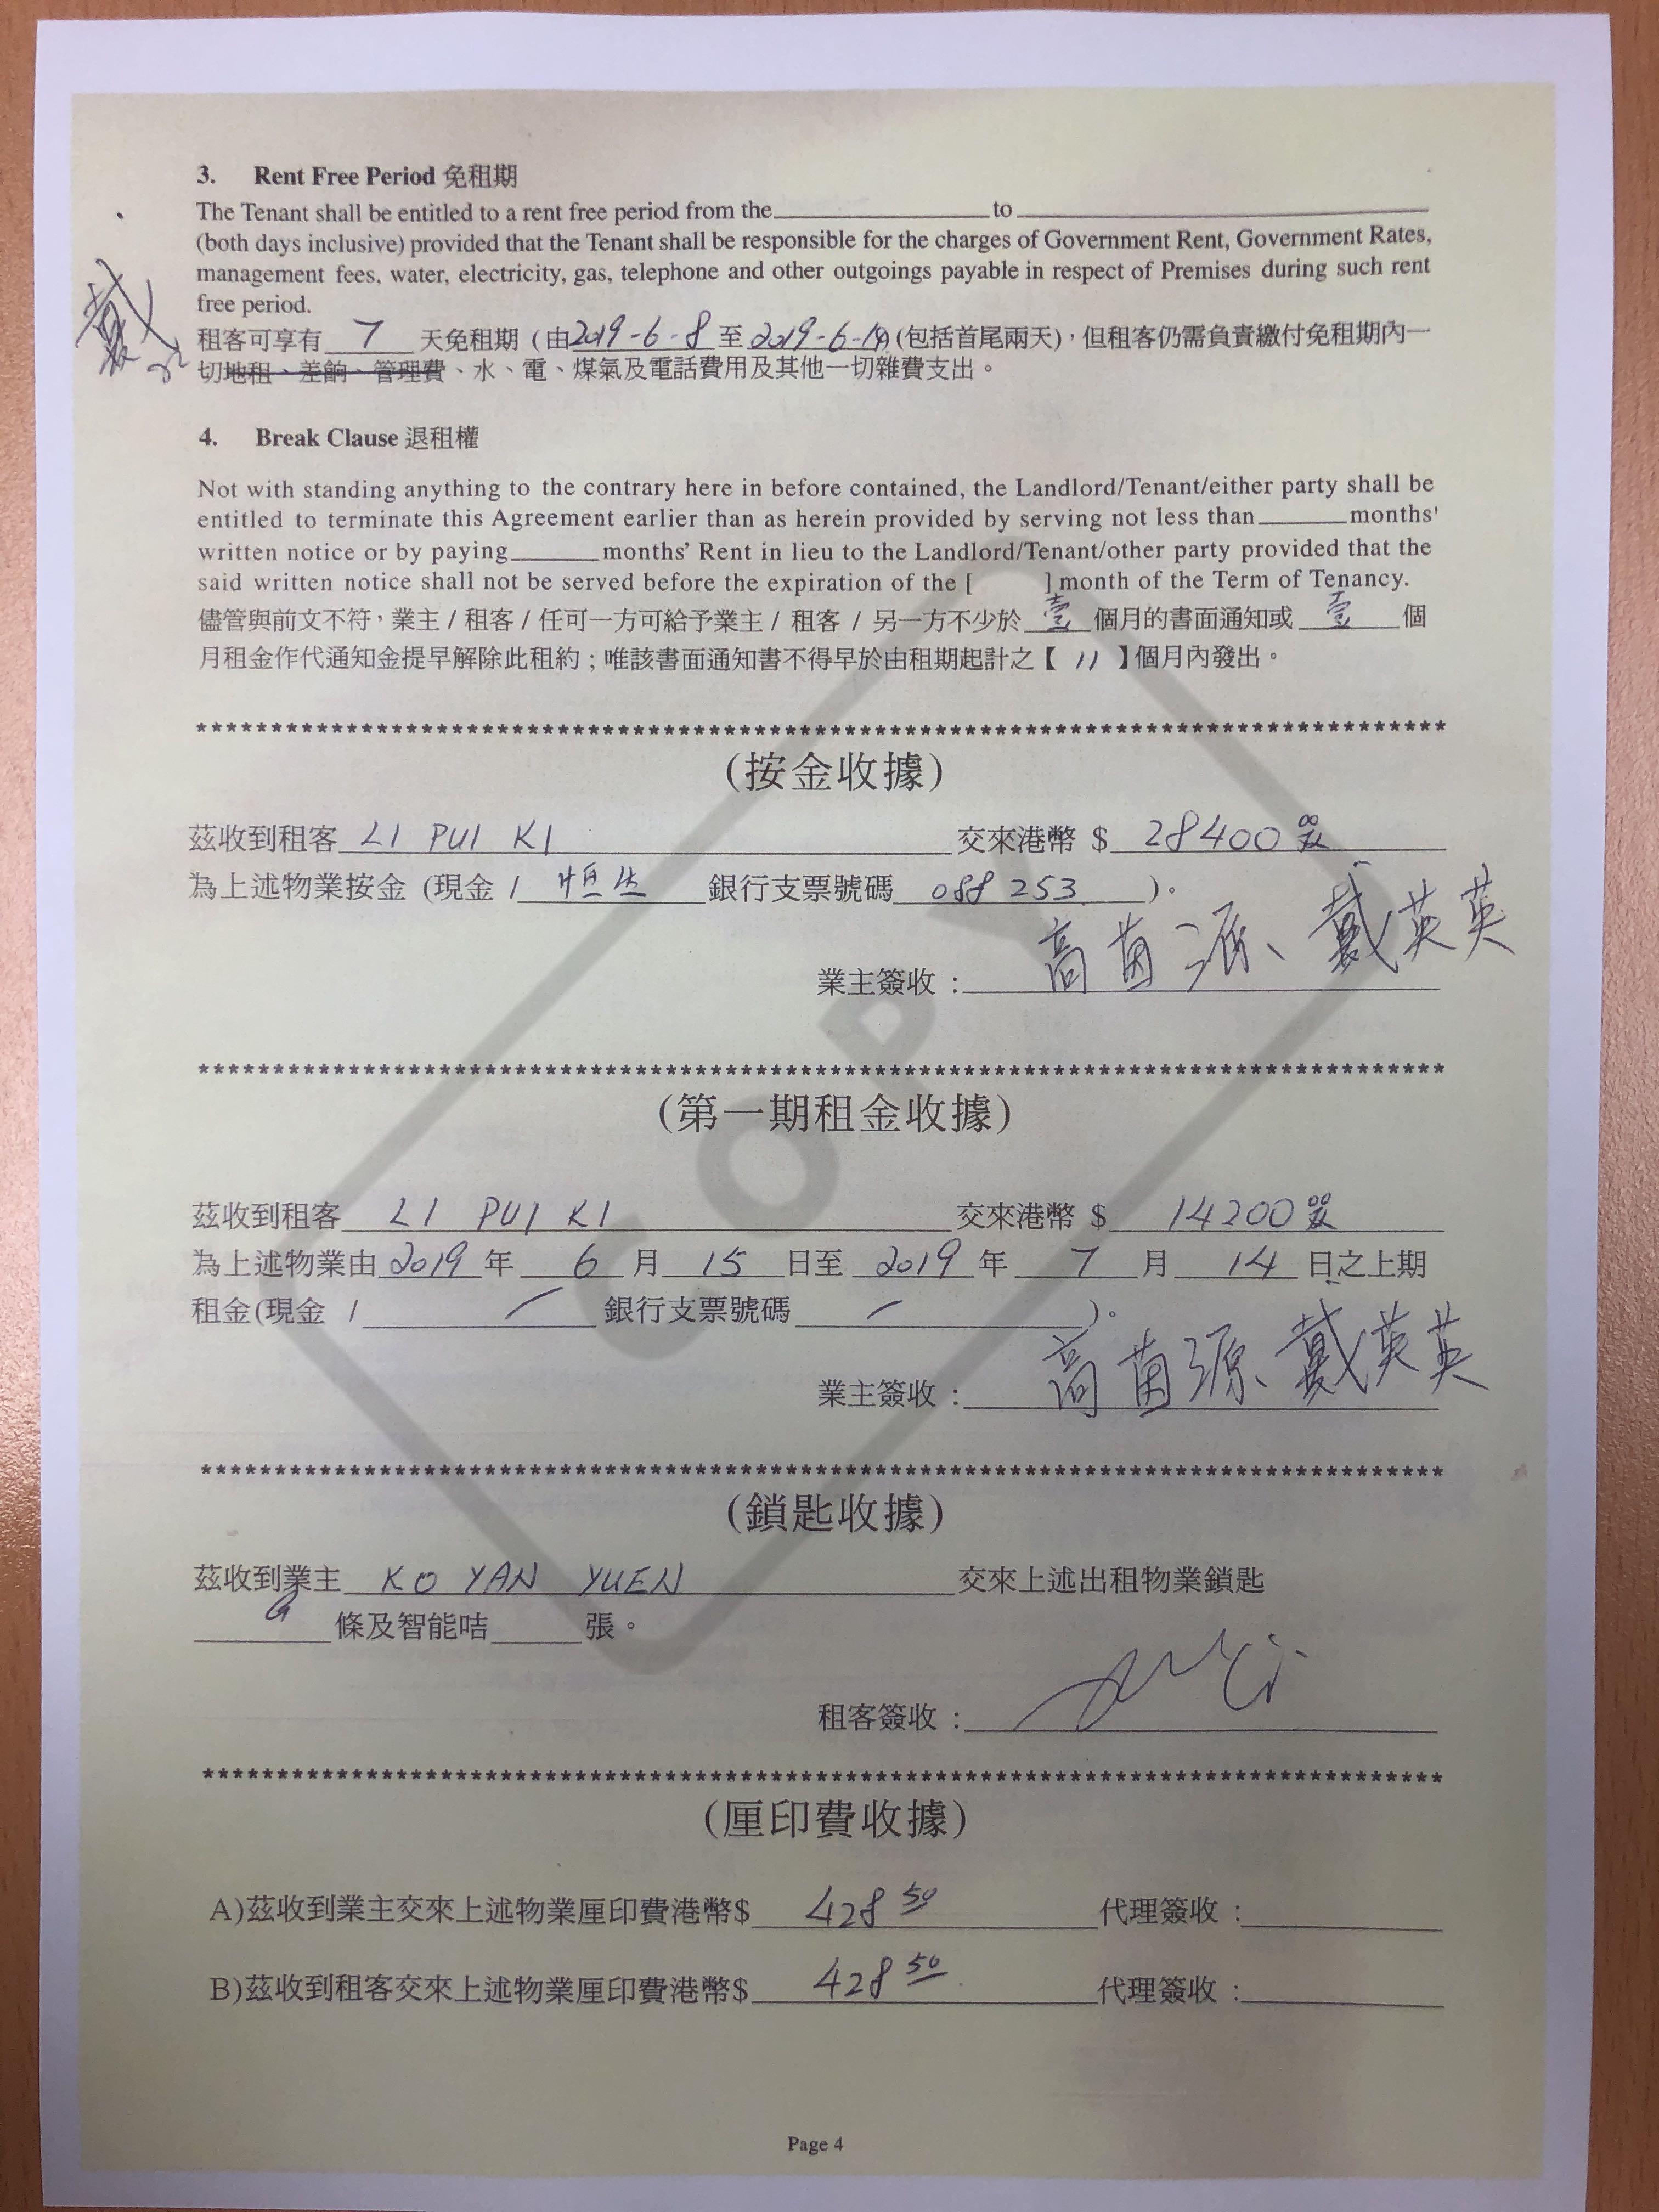 3. Rent Free Period 免租期
The Tenant shall be entitled to a rent free period from the__________to__________
(both days inclusive) provided that the Tenant shall be responsible for the charges of Government Rent, Government Rates,
management fees, water, electricity, gas, telephone and other outgoings payable in respect of Premises during such rent
free period.
戴
租客可享有 7 天免租期 (由2019-6-8 至 2019-6-14 (包括首尾兩天)，但租客仍需負責繳付免租期內一
切地租、差餉、管理費、水、電、煤氣及電話費用及其他一切雜費支出。
4. Break Clause 退租權
Not with standing anything to the contrary here in before contained, the Landlord/Tenant/either party shall be
entitled to terminate this Agreement earlier than as herein provided by serving not less than______months'
written notice or by paying______months' Rent in lieu to the Landlord/Tenant/other party provided that the
said written notice shall not be served before the expiration of the [ ] month of the Term of Tenancy.
儘管與前文不符，業主 / 租客 / 任可一方可給予業主 / 租客 / 另一方不少於 壹 個月的書面通知或 壹 個
月租金作代通知金提早解除此租約；唯該書面通知書不得早於由租期起計之【 11 】個月內發出。
************************************************************
(按金收據)
茲收到租客 LI PUI KI 交來港幣 $ 28400 00
為上述物業按金 (現金 / 恒生 銀行支票號碼 088253 )。
業主簽收： 高茵源、戴英英
************************************************************
(第一期租金收據)
茲收到租客 LI PUI KI 交來港幣 $ 14200 00
為上述物業由 2019 年 6 月 15 日至 2019 年 7 月 14 日之上期
租金(現金 / / 銀行支票號碼 / )。
業主簽收： 高茵源、戴英英
************************************************************
(鎖匙收據)
茲收到業主 KO YAN YUEN 交來上述出租物業鎖匙
______條及智能咭______張。
租客簽收：
************************************************************
(厘印費收據)
A)茲收到業主交來上述物業厘印費港幣$ 428 50 代理簽收：
B)茲收到租客交來上述物業厘印費港幣$ 428 50 代理簽收：
Page 4
COPY